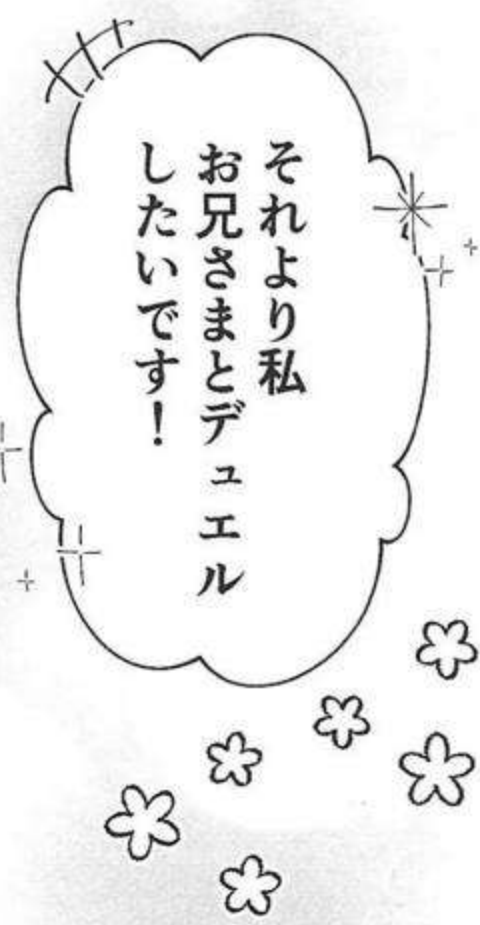 それより私
お兄さまとデュエル
したいです！